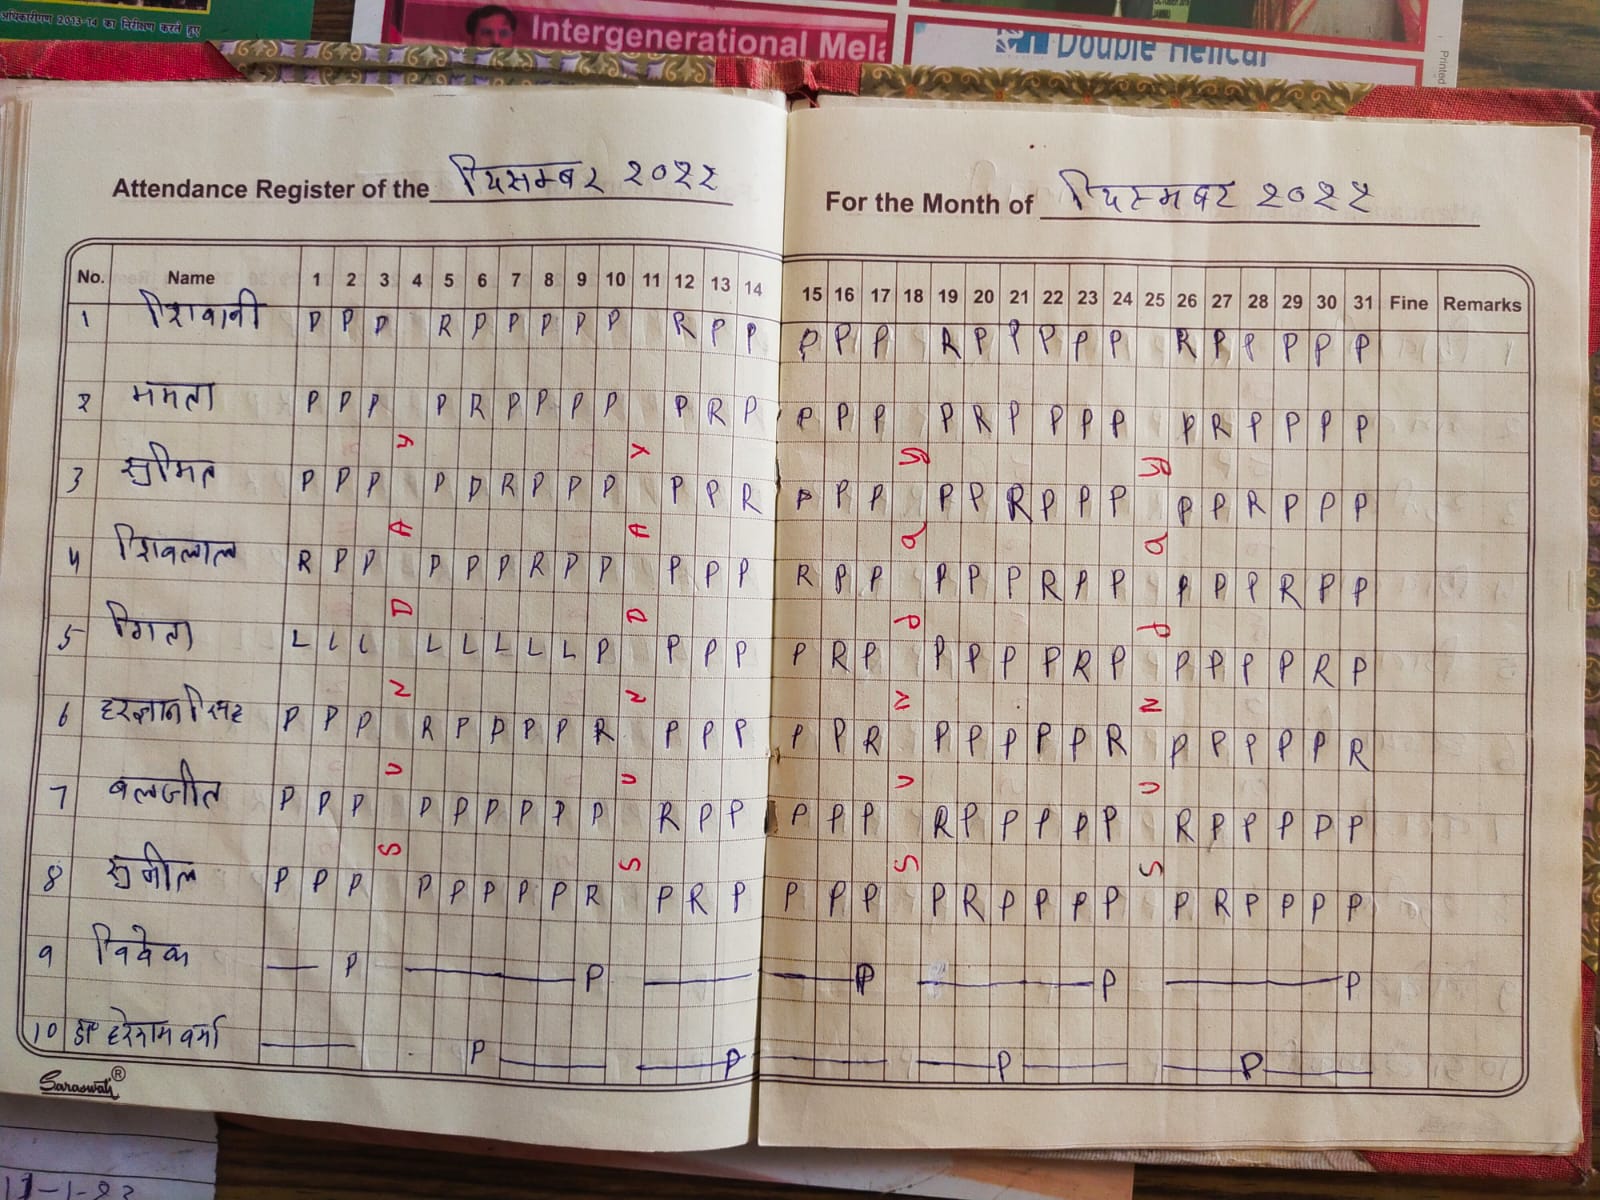 अधिकारीगण 2013-14 का निरीक्षण करते हुए
Intergenerational Mela
Double Helical
Printed
Attendance Register of the दिसम्बर २०२२
For the Month of दिसम्बर २०२२
No. Name 1 2 3 4 5 6 7 8 9 10 11 12 13 14 15 16 17 18 19 20 21 22 23 24 25 26 27 28 29 30 31 Fine Remarks
1 शिवानी P P P R P P P P P R P P P P P R P P P P P R P P P P P
2 ममता P P P P R P P P P P R P P P P P R P P P P P R P P P P
3 सुमित P P P P P R P P P P P R P P P P P R P P P P P R P P P
4 शिवलाल R P P P P P R P P P P P R P P P P P R P P P P P R P P
5 गिता L L L L L L L L P P P P P R P P P P P R P P P P P R P
6 हरज्ञान सिंह P P P R P P P P R P P P P P R P P P P P R P P P P P R
7 बलजीत P P P P P P P P P R P P P P P R P P P P P R P P P P P
8 सुनील P P P P P P P P R P R P P P P P R P P P P P R P P P P
9 विवेक P P P P P
10 डा० हरेराम वर्मा P P P P
S U N D A Y
S U N D A Y
S U N d a y
S U N d a y
Saraswati ®